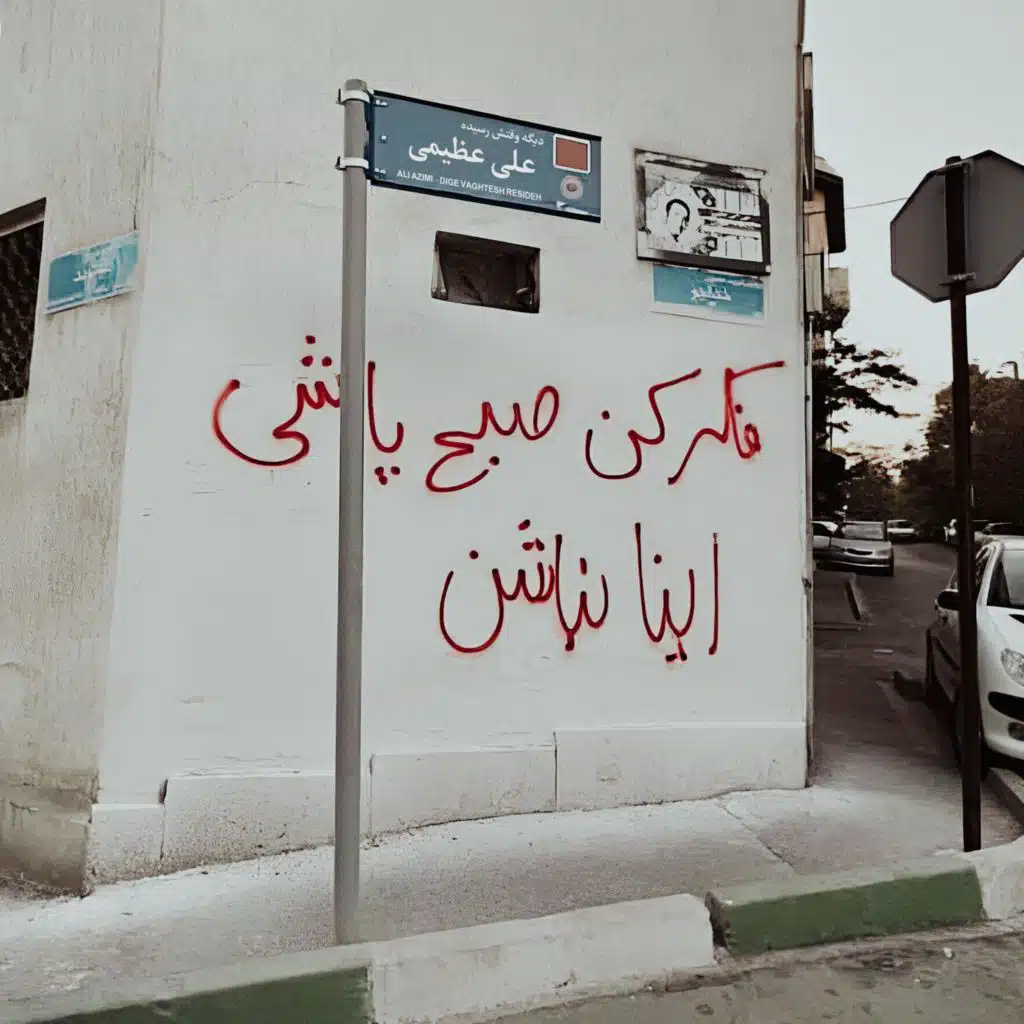 دیگه وقتش رسیده
علی عظیمی
ALI AZIMI - DIGE VAGHTESH RESIDEH
فکر کن صبح پاشی
اینا نباشن